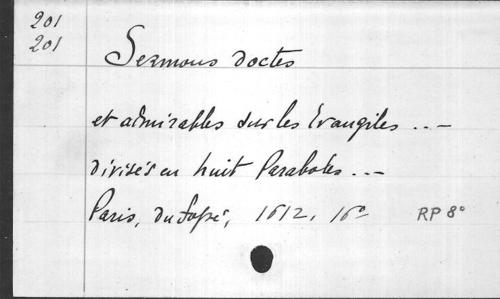 201
201
Sermons doctes
et admirables sur les Evangiles .. –
divisés en huit Paraboles .. –
Paris, du 1612, 16° RP 8°